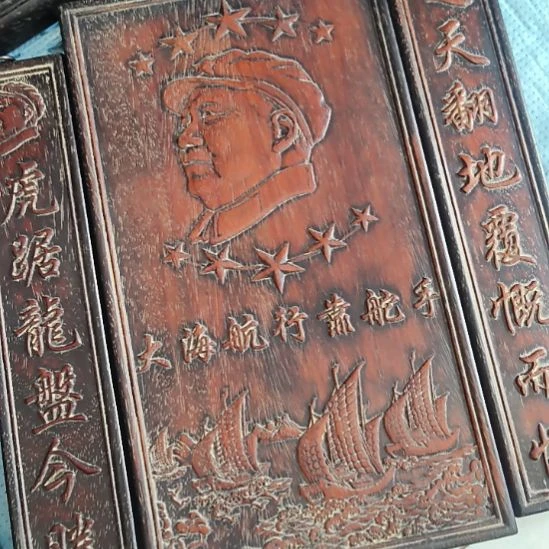 虎踞龍盤今勝
大海航行靠舵手
天翻地覆慨而